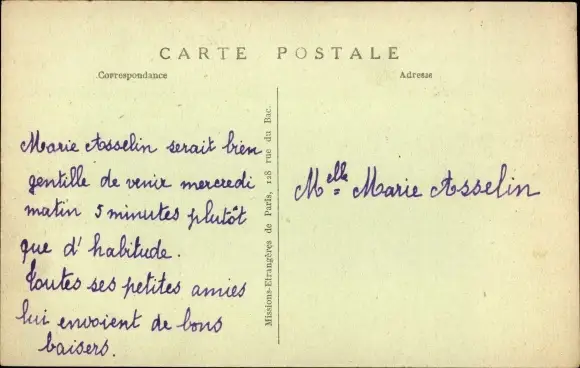 CARTE POSTALE
Correspondance
Adresse
Marie Asselin serait bien
gentille de venir mercredi
matin 5 minutes plutôt
que d'habitude.
Toutes ses petites amies
lui envoient de bons
baisers.
Missions-Etrangères de Paris, 128 rue du Bac.
Melle = Marie Asselin